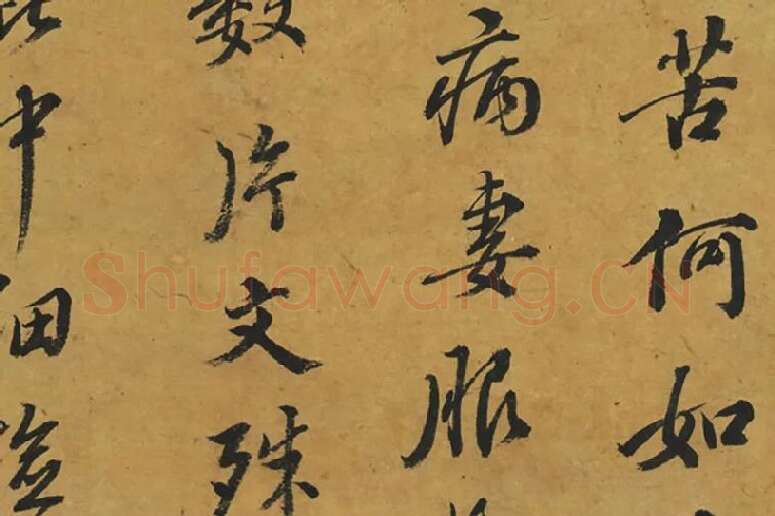 苦何如
病妻服
數片文殊
中細
Shufawang.CN